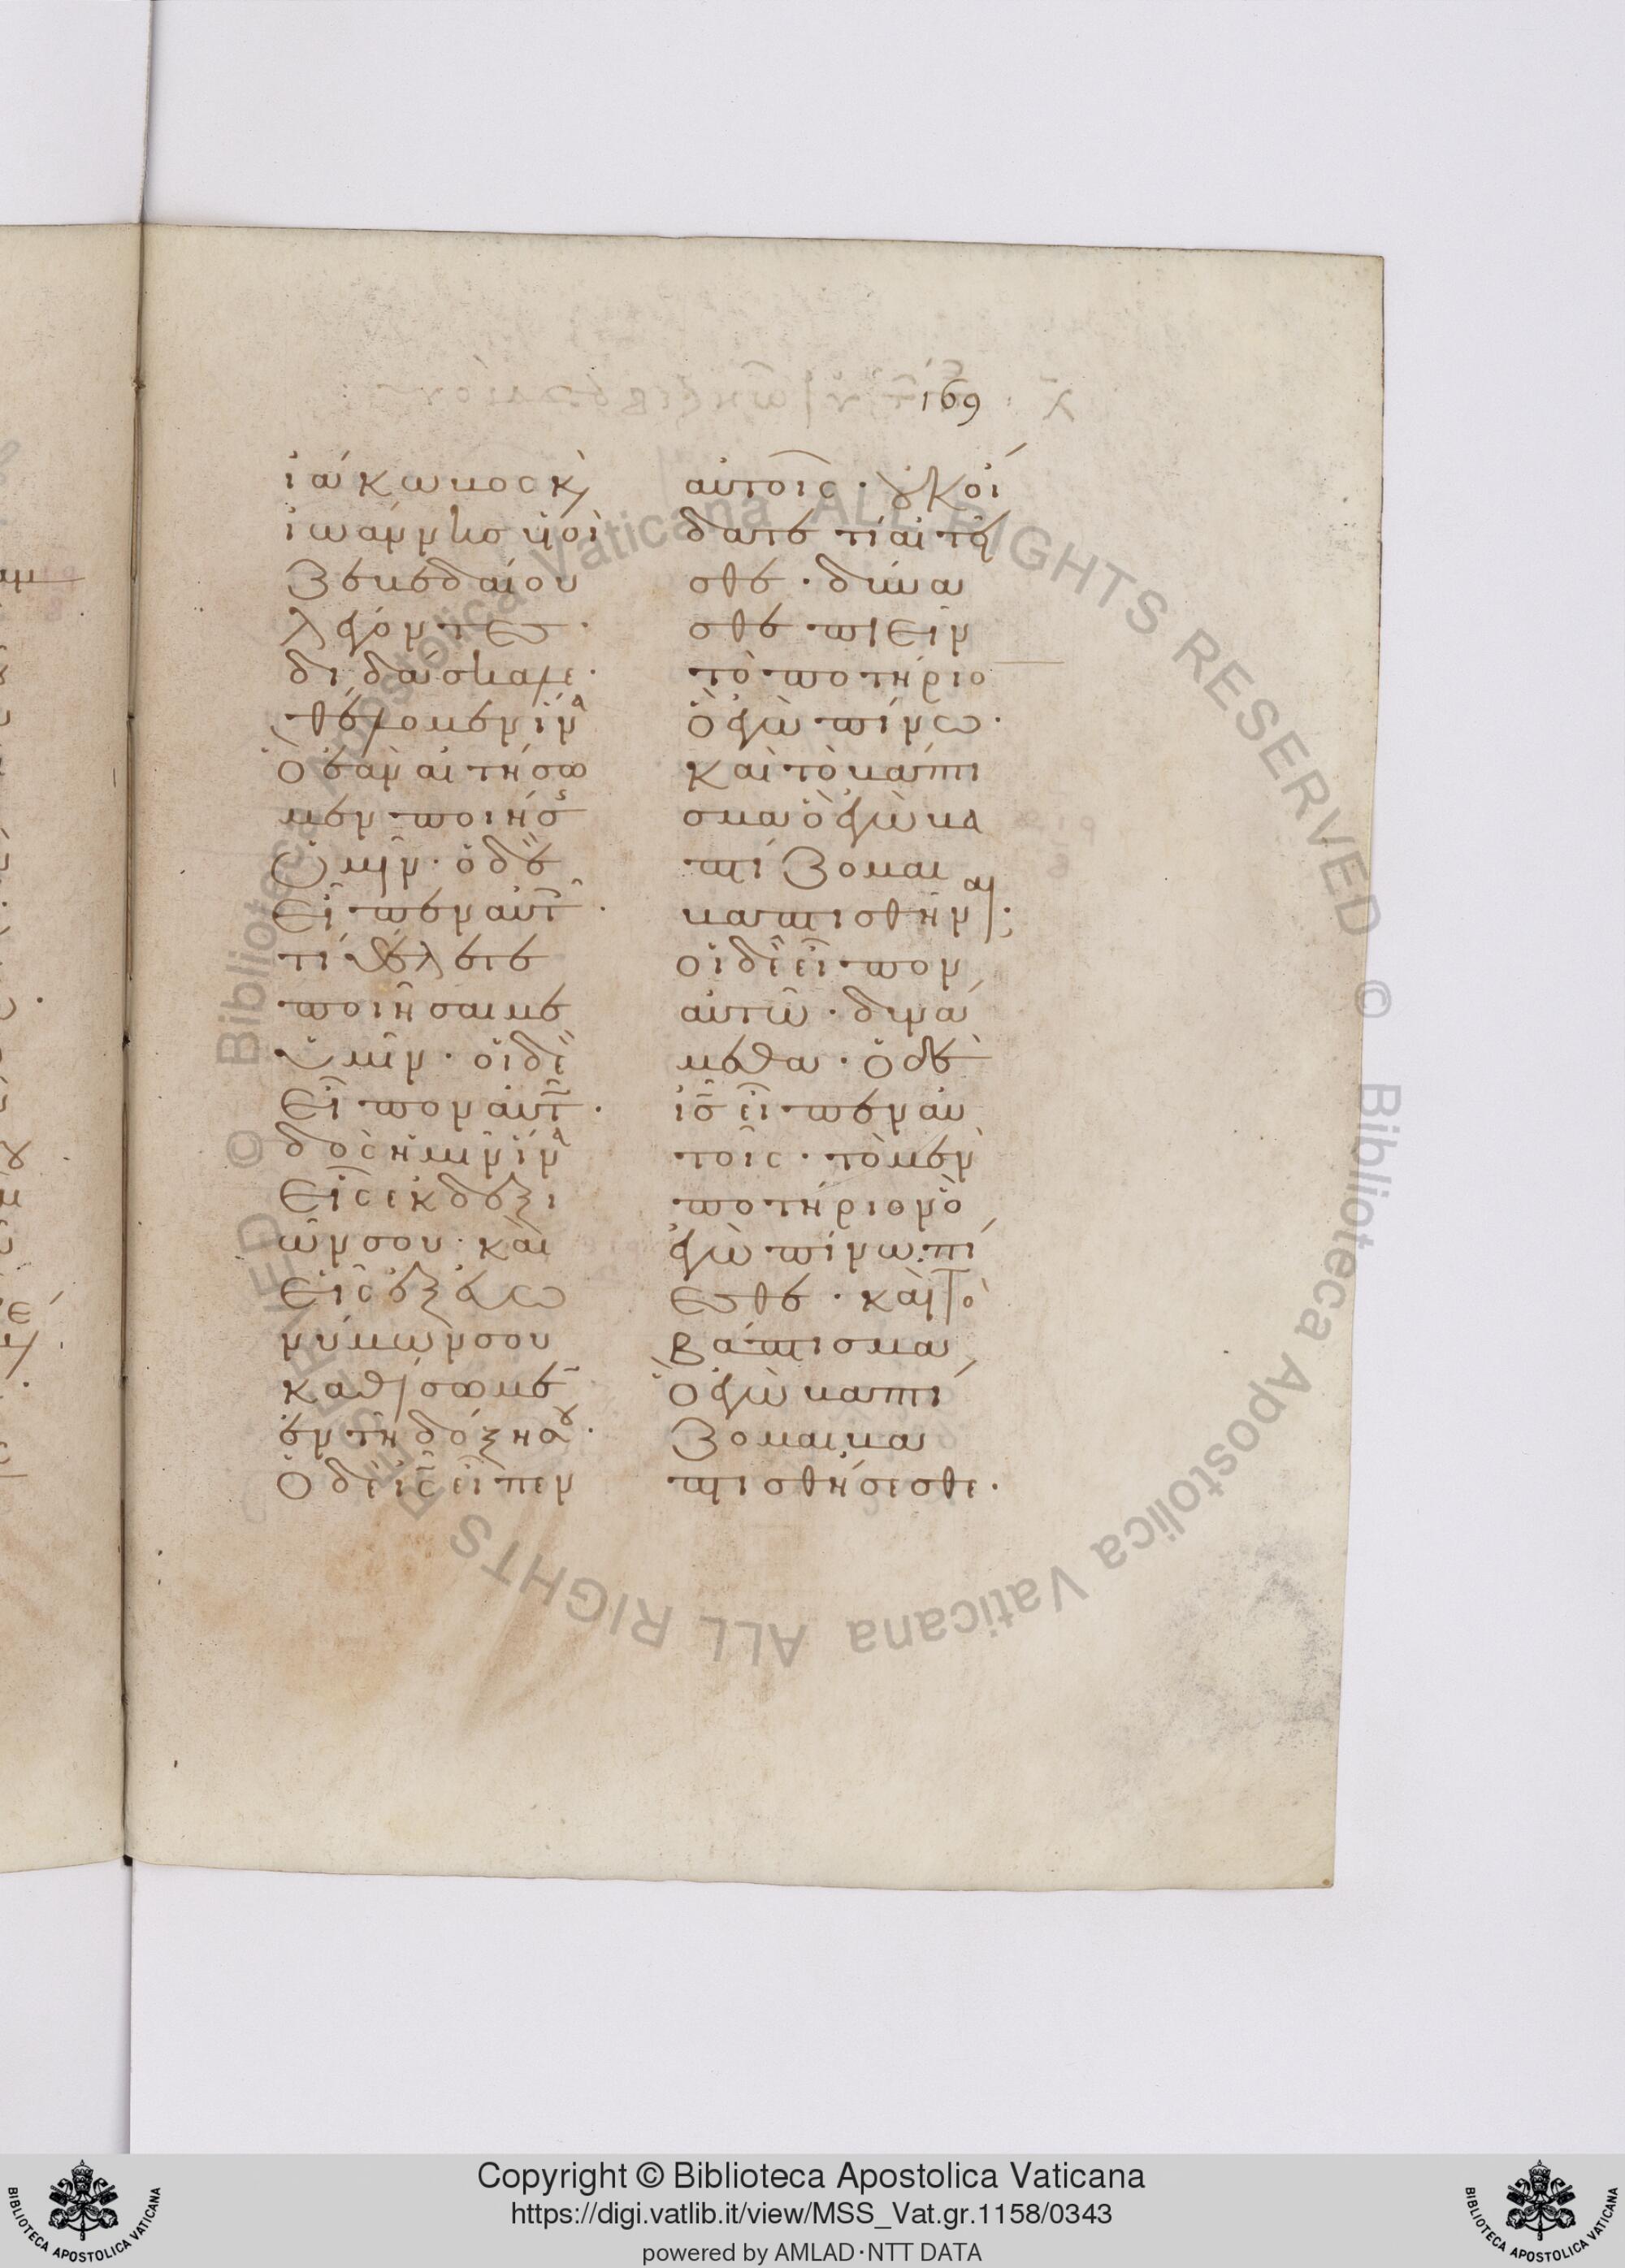 169
ἰάκωβος κ(αὶ)
ἰωάννησ ὑοὶ
Ζεβεδαίου
λέγοντες·
διδάσκαλε·
θέλομεν ἵνα
ὃ ἐὰν αἰτήσω
μεν ποιήσς
ὑμῖν· ὁ δὲ
εἶπεν αὐτ(οῖς)·
τί θέλετε
ποιῆσαι με
ὑμῖν· οἱ δὲ
εἶπον αὐτῶ·
δὸς ἡμῖν ἵνα
εἷς ἐκ δεξι
ῶν σου· καὶ
εἷς ἐξ εὐω
νύμων σου
καθίσωμεν
ἐν τῆ δόξη σου·
ὁ δὲ ἰς εἶπεν
αὐτοῖς· οὐκ οἴ
δατε τί αἰτεῖ
σθε· δύνα
σθε πιεῖν
τὸ ποτήριο(ν)
ὃ ἐγὼ πίνω·
καὶ τὸ βάπτι
σμα ὃ ἐγὼ βα
πτίζομαι
βαπτισθῆναι;
οἱ δὲ εἶπον
αὐτῶ· δυνά
μεθα· ὁ δὲ
ις εἶπεν αὐ
τοῖς· τὸ μὲν
ποτήριον ὃ
ἐγὼ πίνω πί
εσθε· καὶ τὸ
βάπτισμα
ὃ ἐγὼ βαπτί
ζομαι βα
πτισθήσεσθε·
Copyright © Biblioteca Apostolica Vaticana
https://digi.vatlib.it/view/MSS_Vat.gr.1158/0343
powered by AMLAD·NTT DATA
BIBLIOTECA APOSTOLICA VATICANA
BIBLIOTECA APOSTOLICA VATICANA
© Biblioteca Apostolica Vaticana ALL RIGHTS RESERVED © Biblioteca Apostolica Vaticana ALL RIGHTS RESERVED